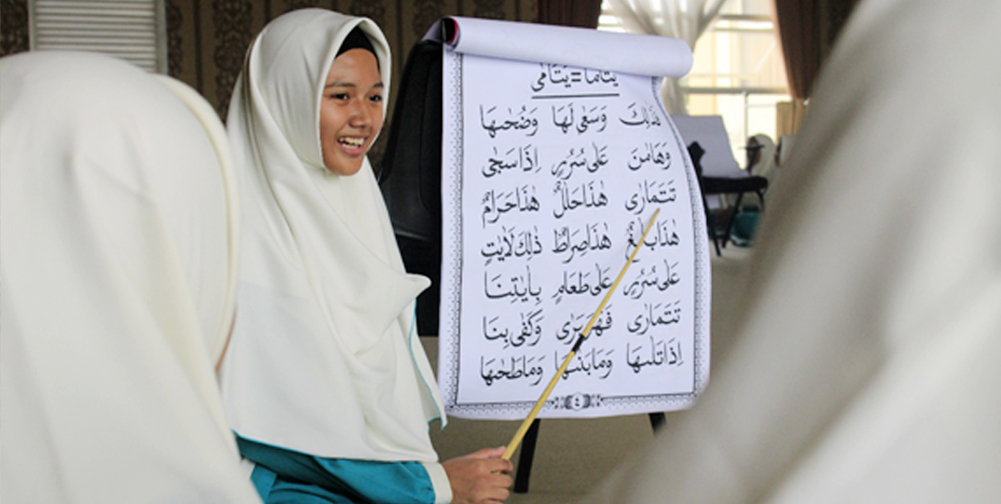 يَتَامَا = يَتَامٰى
ذٰلِكَ وَسَعٰى لَهَا وَضُحٰىهَا
وَهَامٰنَ عَلٰى سُرُرٍ اِذَا سَجٰى
تَتَمَارٰى هٰذَا حَلٰلٌ هٰذَا حَرَامٌ
هٰذَا بَلٰغٌ هٰذَا صِرَاطٌ ذٰلِكَ لَاٰيٰتٍ
عَلٰى سُرُرٍ عَلٰى طَعَامٍ بِاٰيٰتِنَا
تَتَمَارٰى فَهُوَ يَرٰى وَكَفٰى بِنَا
اِذَا تَلٰىهَا وَمَا بَنٰىهَا وَمَا طَحٰىهَا
٤